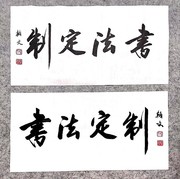 書法定制
書法定制